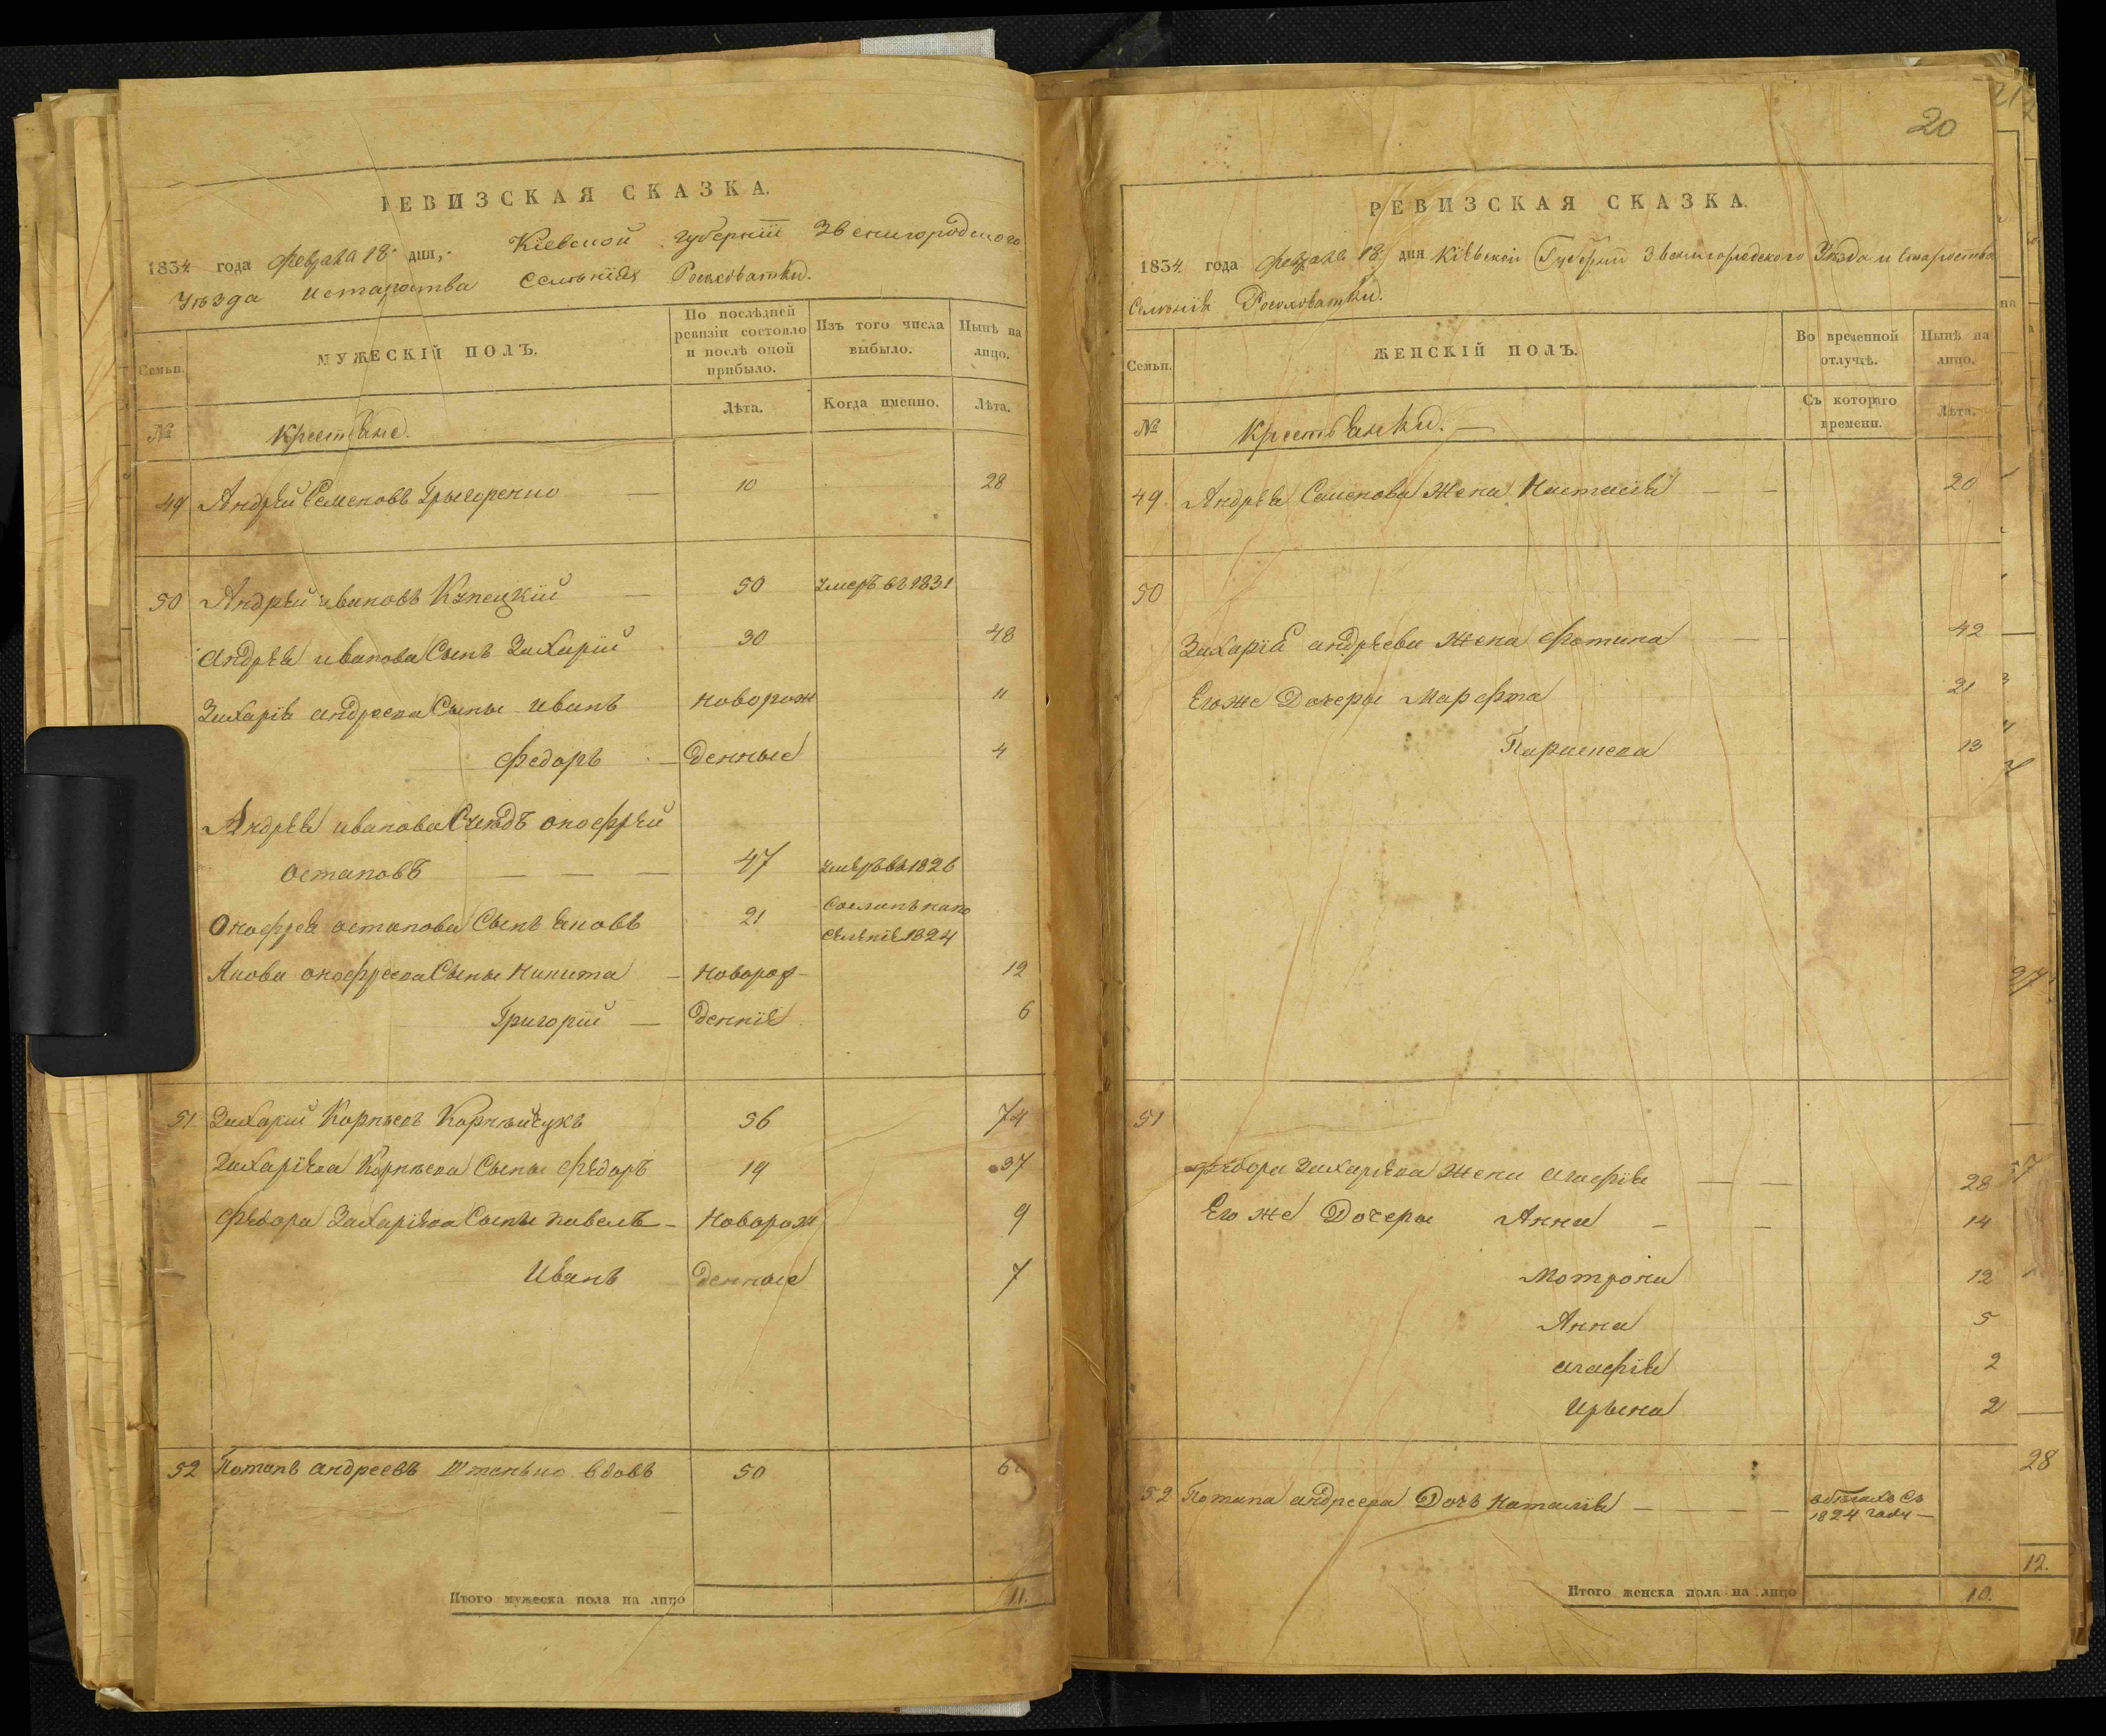 РЕВИЗСКАЯ СКАЗКА.
1834 года февраля 18 дня, Кіевской губерніи Звенигородского
Уѣзда и староства Селенія Росоховатки.
Семьи. МУЖЕСКІЙ ПОЛЪ. По послѣдней ревизіи состояло и послѣ оной прибыло. Изъ того числа выбыло. Нынѣ на лицо.
№ Крестьяне. Лѣта. Когда именно. Лѣта.
49 Андрѣй Семеновъ Грыгоренко — 10 28
50 Андрѣй ивановъ Купецкій — 50 умеръ въ 1831
андрѣя иванова Сынъ Захарій 30 48
Захарія андреева Сыны иванъ новорож 11
федоръ — денные 4
Андрѣя иванова онофрѣй
остаповъ — — — 47 умеръ въ 1826
Онофрея остапова Сынъ яковъ 21 Сосланъ на по
селеніе 1824
Якова онофреева Сыны Никита — Новорож- 12
Григорій — денніе 6
51 Захарій Корнѣевъ Корнѣйчукъ 56 74
Захаріева Корнѣева Сыны Фѣдоръ 19 37
Фѣдора Захаріева Сыны павелъ — Новорож 9
Иванъ — денные 7
52 Потапъ андреевъ Штенько вдовъ 50 6
Итого мужеска пола на лицо 11.
20
РЕВИЗСКАЯ СКАЗКА.
1834 года февраля 18 дня Кіевской Губерніи Звенигородского Уѣзда и Староства
Селенія Росоховатки.
Семьи. ЖЕНСКІЙ ПОЛЪ. Во временной отлучкѣ. Нынѣ на лицо.
№ Крестьянки. — Съ котораго времени. Лѣта.
49 Андрѣя Семенова Жена Настасія — — 20
50
Захарія андрѣева жена фотина — 42
Егоже Дочеры Марфта 21
Параскева 13
51
Фѣдора Захаріева Жена агафія — — 28
Его же Дочеры Анна — — 14
Мотрона 12
Анна 5
агафія 2
Ирына 2
52 Потапа андреева Дочь наталія — — — въ бѣгахъ съ
1824 года —
Итого женска пола на лицо 10.
28
12.